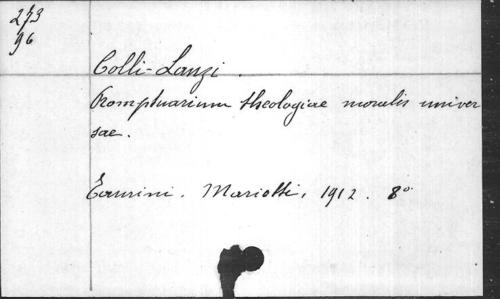 273
96
Colli-Lanzi.
Promptuarium theologiae moralis univer
sae.
Taurini. Mariotti, 1912. 8º